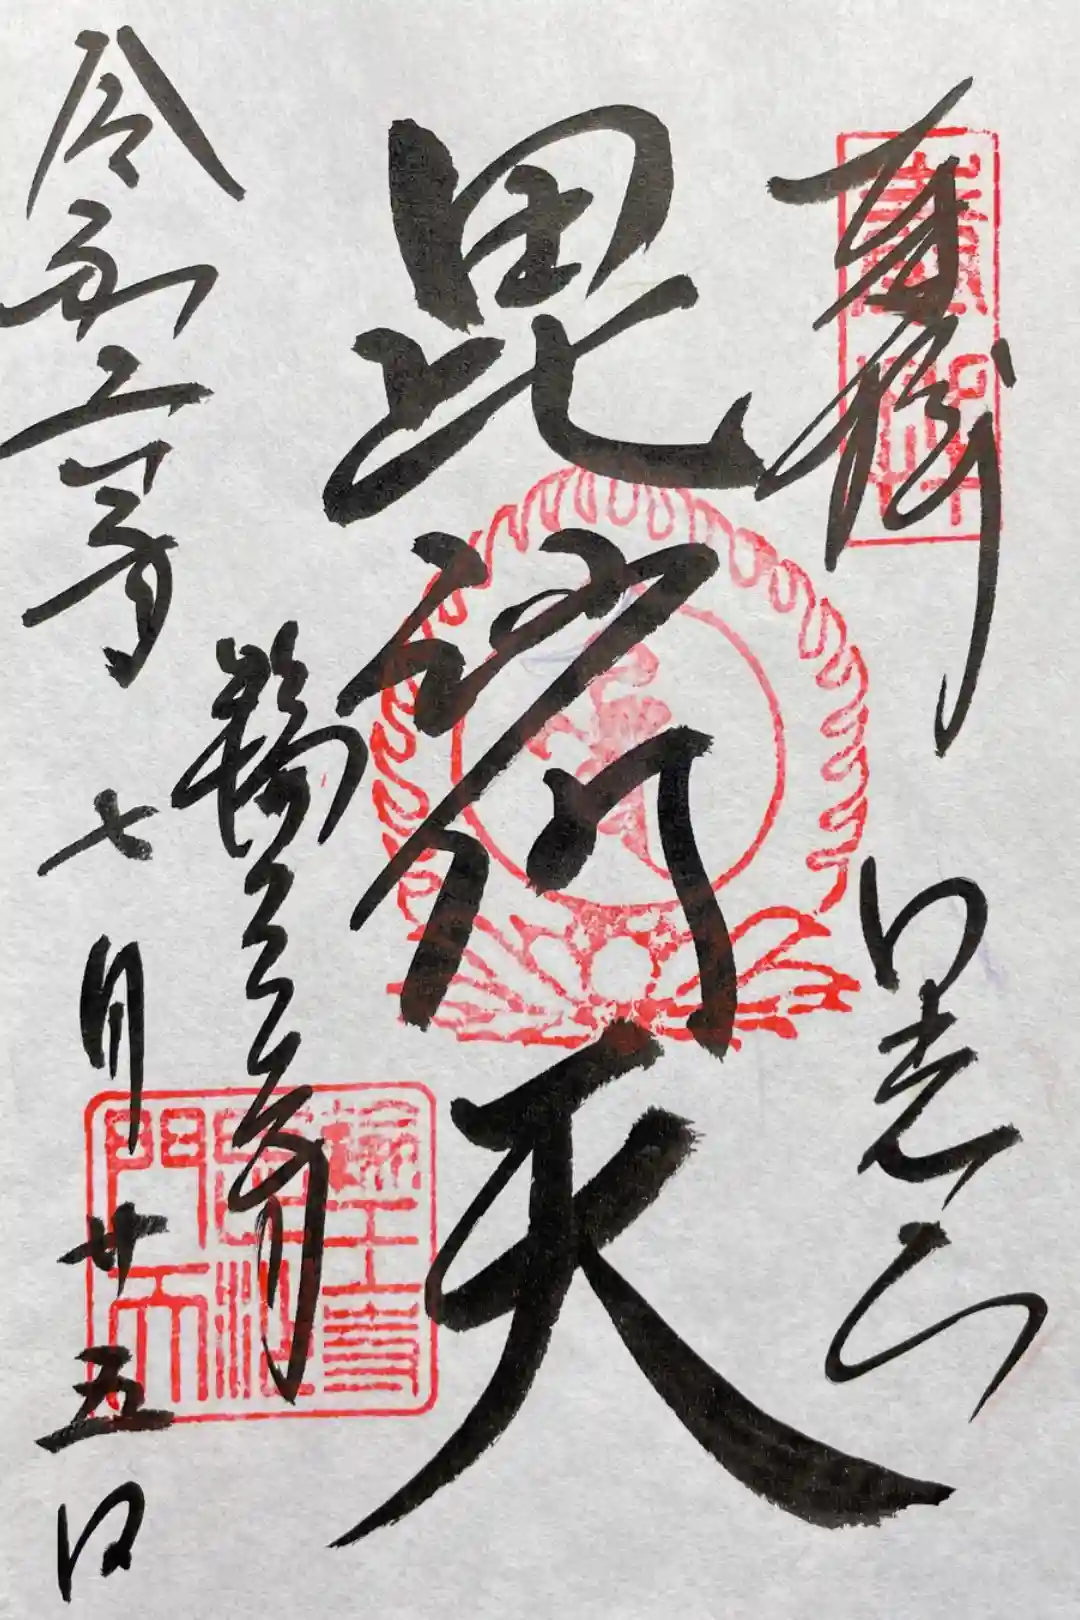 奉拝 日光山
毘沙門天
輪王寺
令和二年七月廿五日
輪王寺
毘沙
門天